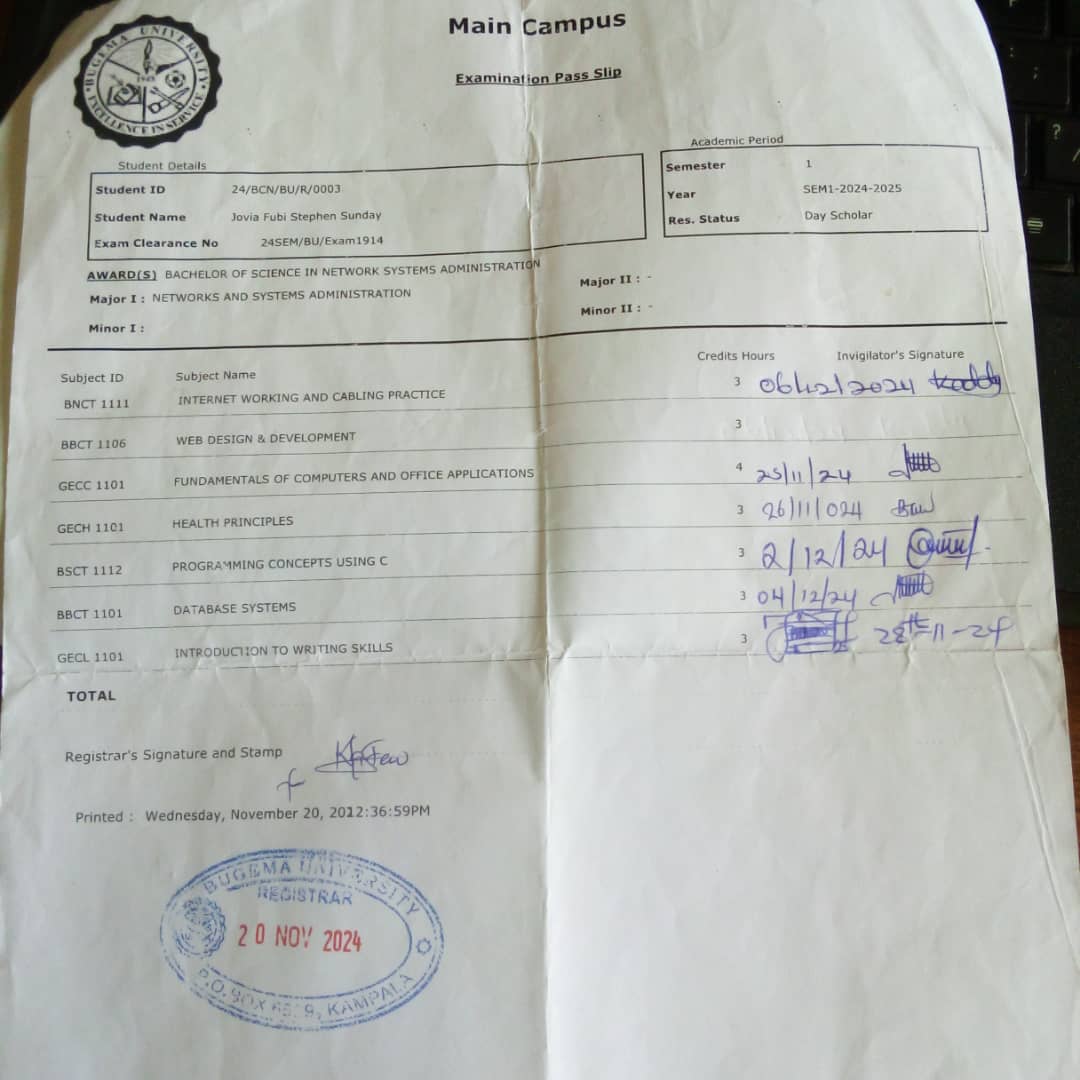 BUGEMA UNIVERSITY
1948
EXCELLENCE IN SERVICE
Main Campus
Examination Pass Slip
Student Details
Student ID 24/BCN/BU/R/0003
Student Name Jovia Fubi Stephen Sunday
Exam Clearance No 24SEM/BU/Exam1914
Academic Period
Semester 1
Year SEM1-2024-2025
Res. Status Day Scholar
AWARD(S) BACHELOR OF SCIENCE IN NETWORK SYSTEMS ADMINISTRATION
Major I : NETWORKS AND SYSTEMS ADMINISTRATION Major II : -
Minor I : Minor II : -
Subject ID Subject Name Credits Hours Invigilator's Signature
BNCT 1111 INTERNET WORKING AND CABLING PRACTICE 3 06/12/2024
BBCT 1106 WEB DESIGN & DEVELOPMENT 3
GECC 1101 FUNDAMENTALS OF COMPUTERS AND OFFICE APPLICATIONS 4 25/11/24
GECH 1101 HEALTH PRINCIPLES 3 26/11/024
BSCT 1112 PROGRAMMING CONCEPTS USING C 3 2/12/24
BBCT 1101 DATABASE SYSTEMS 3 04/12/24
GECL 1101 INTRODUCTION TO WRITING SKILLS 3 28th-11-24
TOTAL
Registrar's Signature and Stamp
Printed : Wednesday, November 20, 2012:36:59PM
BUGEMA UNIVERSITY
REGISTRAR
20 NOV 2024
P.O. BOX KAMPALA